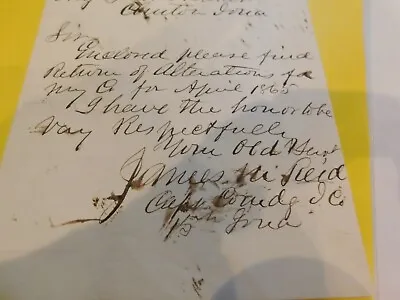 Clinton Iowa
Sir
Enclosed please find
Return of Alterations for
my Co for April 1865
I have the honor to be
very Respectfully
Your Obdt Servt
James M Reid
Capt Comdg I Co
15th Iowa